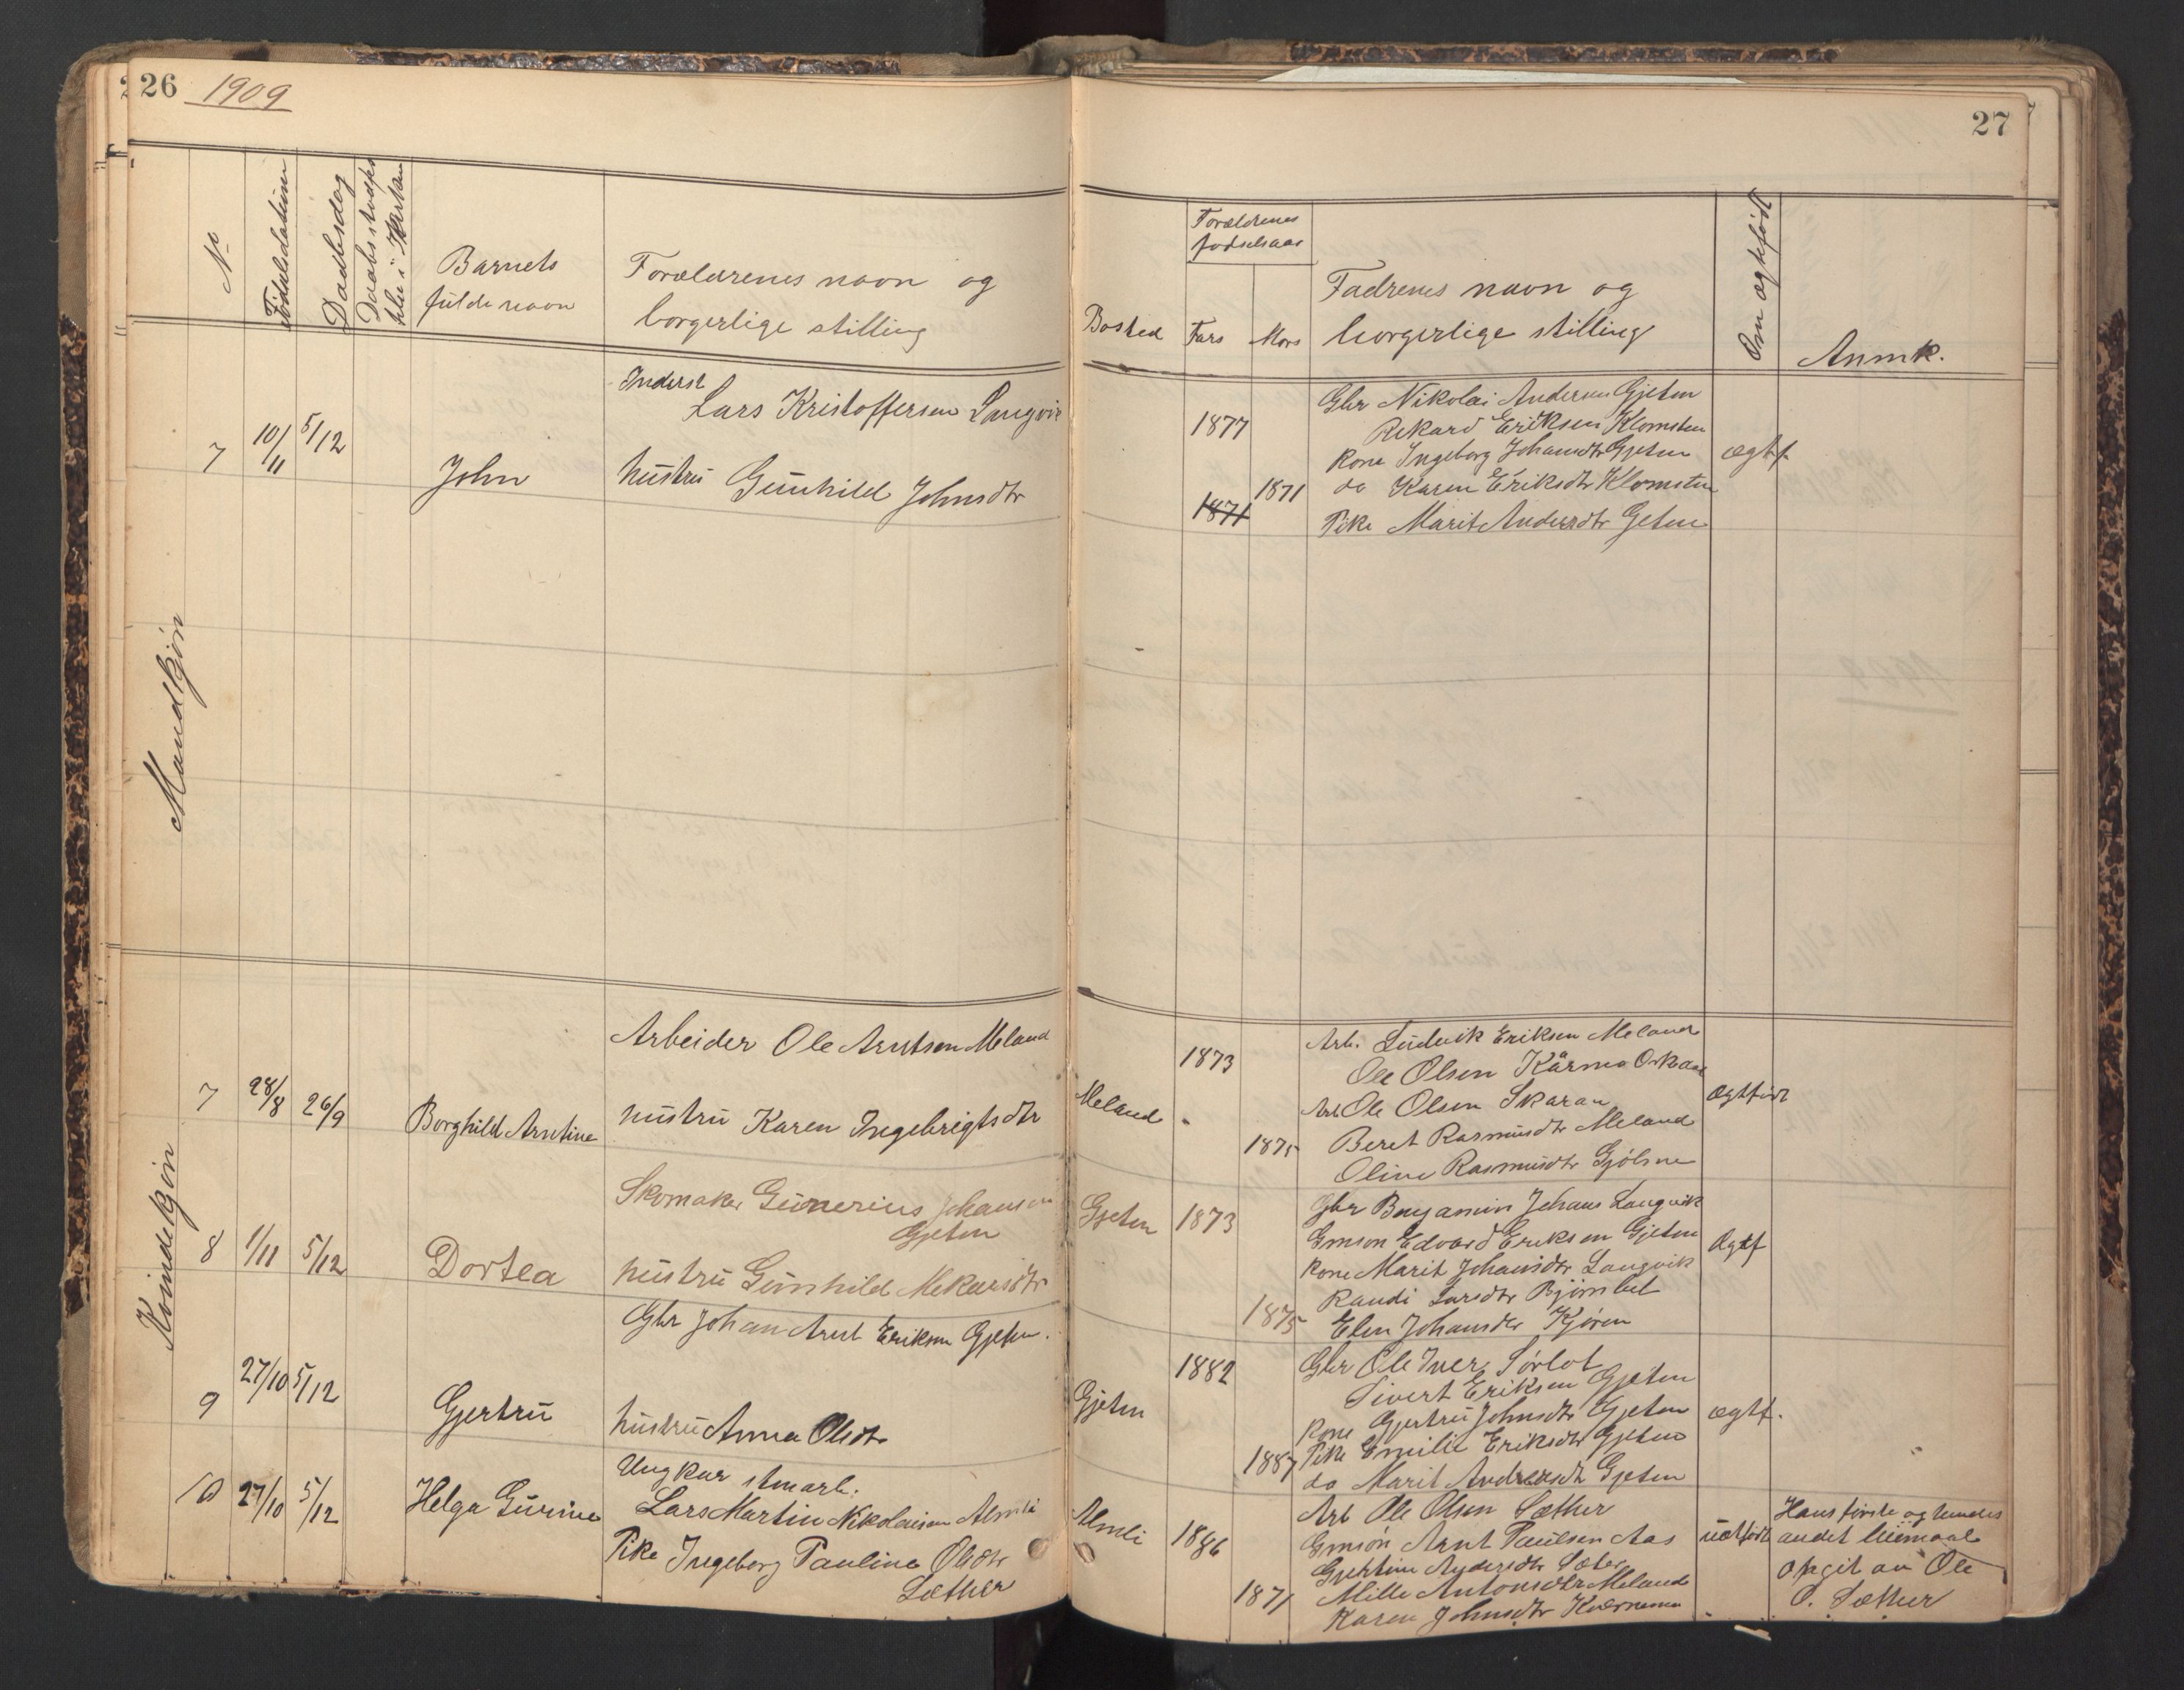 26 1909
27
No
Fødselsdatum
Daabsdag
Barnets
fulde navn
Forældrenes navn og
borgerlige stilling
Bosted
Forældrenes
fødselsaar
Fars Mors
Fadrenes navn og
borgerlige stilling
Om ægtefødt
Anmk.
Mandkjøn
Inderst
Lars Kristoffersen Langvik
7 10/11 5/12 John
hustru Gunhild Johnsdtr
1877
1871
1871
Gbr Nikolai Andersen Gjeten
Rikard Eriksen Klomsten
Kone Ingeborg Johansdtr Gjeten
do Karen Eriksdtr Klomsten
Pike Marit Andersdtr Gjeten
ægtf.
Kvindekjøn
Arbeider Ole Arntsen Meland
7 28/8 26/9 Borghild Arntine
hustru Karen Ingebrigtsdtr
Meland
1873
1875
Arb. Ludvik Eriksen Meland
Ole Olsen Kårmo
Arb Ole Olsen Skaran
Beret Rasmusdtr Meland
Oline Rasmusdtr Gjølme
Ægtfødt
Skomaker Gunerius Johansen
Gjeten
8 1/11 5/12 Dortea
hustru Gunhild
Gjeten 1873
1875
Gbr Benjamin Johans Langvik
Gmson Edvard Eriksen Gjeten
Kone Marit Johansdtr Langvik
Randi Larsdtr
Elen Johansdtr Kjøren
Ægtf
Gbr Johan Arnt Eriksen Gjeten.
9 27/10 5/12 Gjertru
hustru Anna Olsdtr
Gjeten
1882
1887
Gbr Ole Iver Sørlot
Sivert Eriksen Gjeten
Kone Gjertru Johnsdtr Gjeten
Pike Emilie Eriksdtr Gjeten
do Marit Andersdtr Gjeten
ægtf.
10 27/10 5/12 Helga Gurine
Ungkar stmarb.
Lars Martin Nikolaisen Almli
Pike Ingeborg Paulina Olsdtr
Sæther
Almli 1886
1871
Arb Ole Olsen Sæther
Gmsøn Arnt Paulsen Aas
Andersdtr Sæter
Mille Antonsdtr Meland
Karen Johnsdtr
uætfødt
Hans første og hendes
andet leiemaal
opgit av Ole
O. Sæther